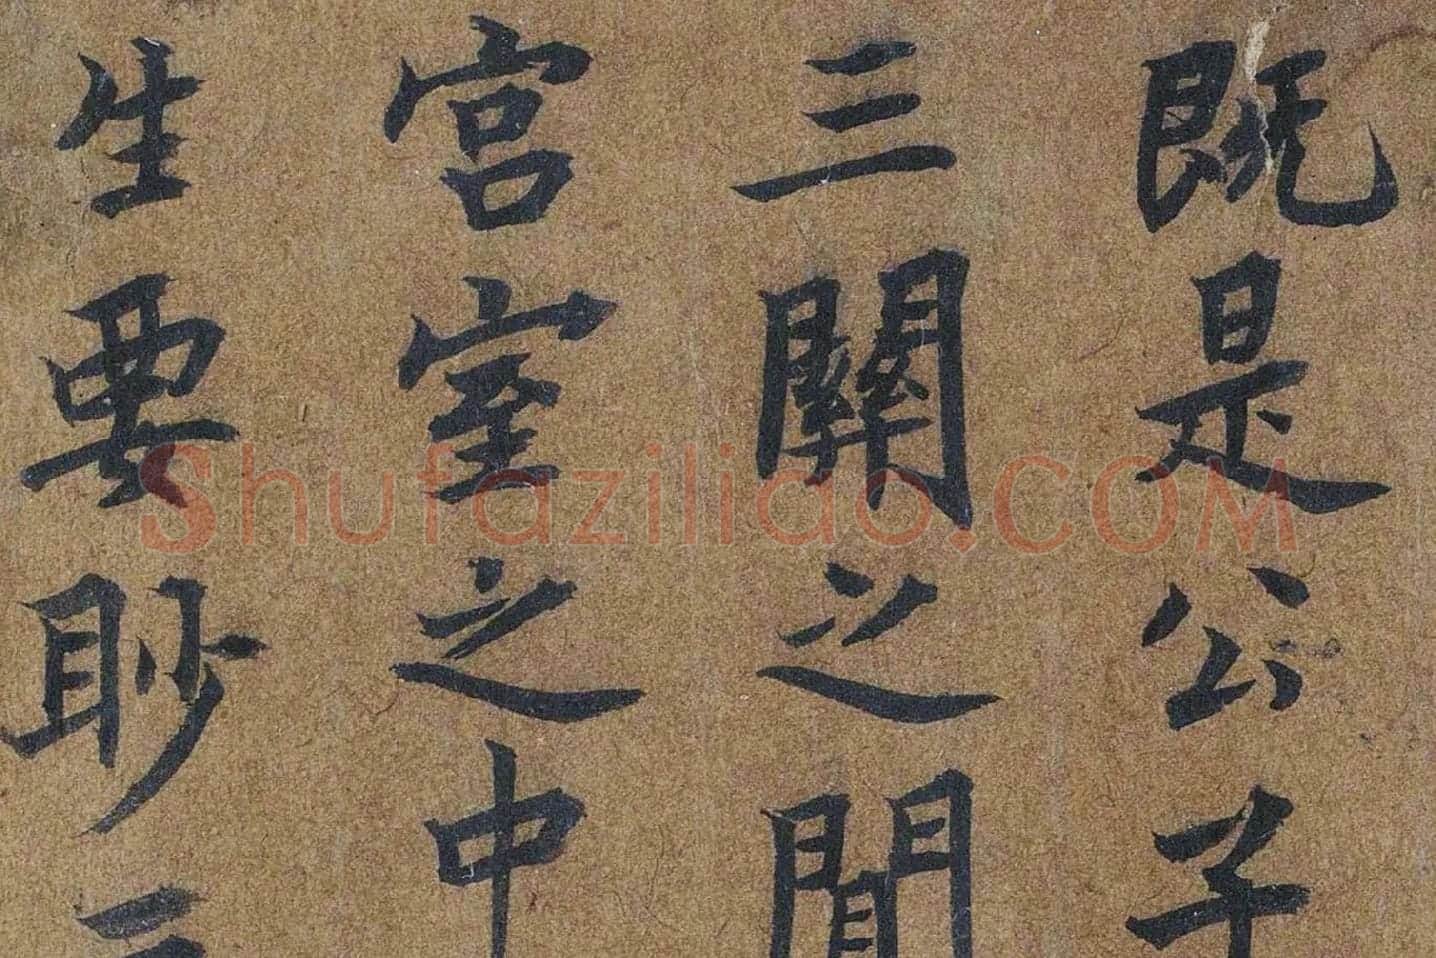 既是公子
三關之間
宮室之中
生要眇
Shufaziliao.COM